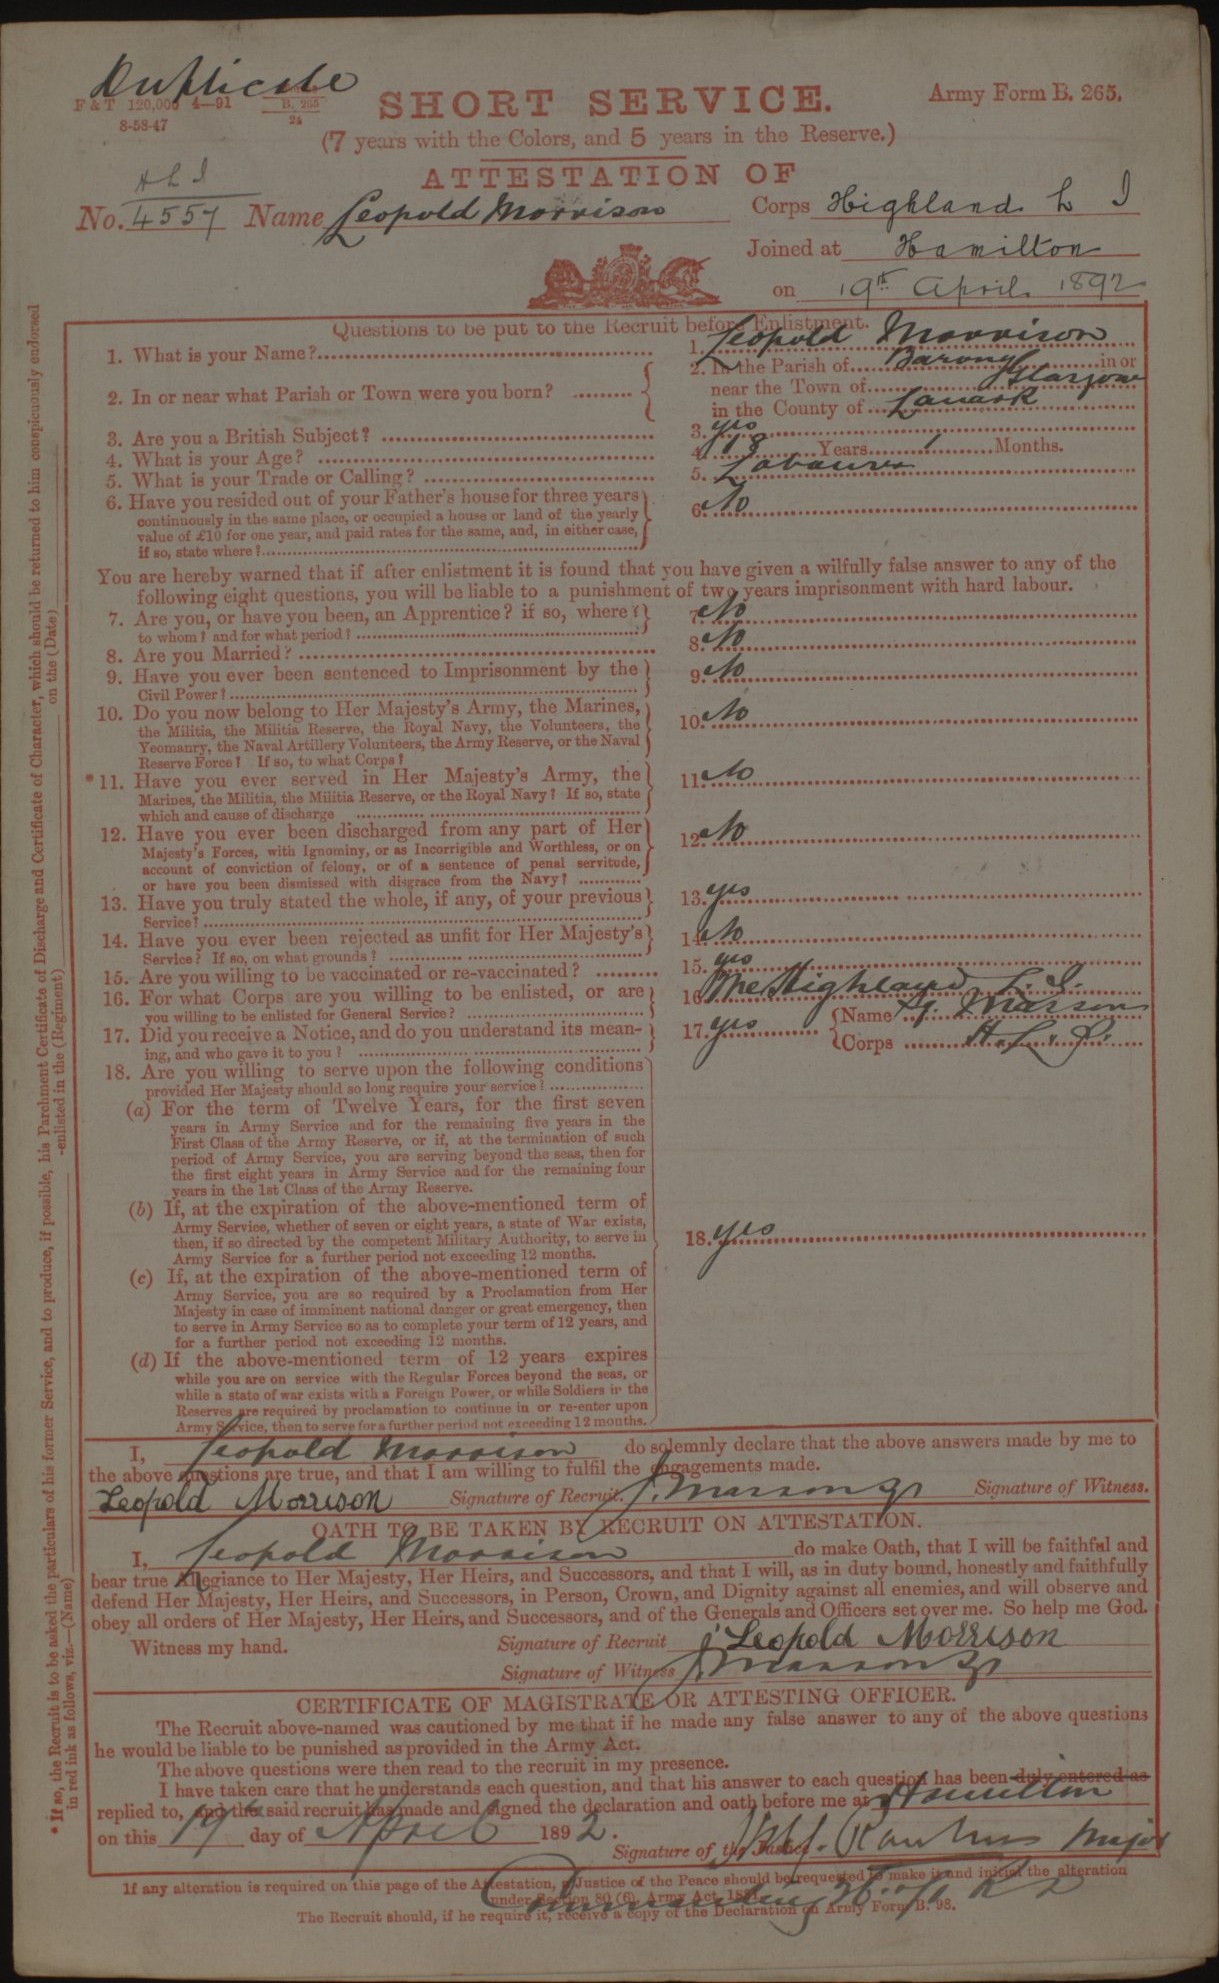 Duplicate
F & T 120,000 4—91 B. 265
8-58-47 24
SHORT SERVICE.
Army Form B. 265.
(7 years with the Colors, and 5 years in the Reserve.)
ATTESTATION OF
H L I
No. 4557 Name Leopold Morrison Corps Highland L I
Joined at Hamilton
on 19th April 1892
Questions to be put to the Recruit before Enlistment.
1. What is your Name? 1. Leopold Morrison
2. In or near what Parish or Town were you born? 2. In the Parish of Barony in or
near the Town of Glasgow
in the County of Lanark
3. Are you a British Subject? 3. yes
4. What is your Age? 4. 18 Years 1 Months.
5. What is your Trade or Calling? 5. Labourer
6. Have you resided out of your Father's house for three years 6. No
continuously in the same place, or occupied a house or land of the yearly
value of £10 for one year, and paid rates for the same, and, in either case,
if so, state where?
You are hereby warned that if after enlistment it is found that you have given a wilfully false answer to any of the
following eight questions, you will be liable to a punishment of two years imprisonment with hard labour.
7. Are you, or have you been, an Apprentice? if so, where? 7. No
to whom? and for what period?
8. Are you Married? 8. No
9. Have you ever been sentenced to Imprisonment by the 9. No
Civil Power?
10. Do you now belong to Her Majesty's Army, the Marines, 10. No
the Militia, the Militia Reserve, the Royal Navy, the Volunteers, the
Yeomanry, the Naval Artillery Volunteers, the Army Reserve, or the Naval
Reserve Force? If so, to what Corps?
* 11. Have you ever served in Her Majesty's Army, the 11. No
Marines, the Militia, the Militia Reserve, or the Royal Navy? If so, state
which and cause of discharge
12. Have you ever been discharged from any part of Her 12. No
Majesty's Forces, with Ignominy, or as Incorrigible and Worthless, or on
account of conviction of felony, or of a sentence of penal servitude,
or have you been dismissed with disgrace from the Navy?
13. Have you truly stated the whole, if any, of your previous 13. yes
Service?
14. Have you ever been rejected as unfit for Her Majesty's 14. No
Service? If so, on what grounds?
15. Are you willing to be vaccinated or re-vaccinated? 15. yes
16. For what Corps are you willing to be enlisted, or are 16. The Highland L. I.
you willing to be enlisted for General Service?
17. Did you receive a Notice, and do you understand its mean- 17. yes Name Masson
ing, and who gave it to you? Corps H. L. I.
18. Are you willing to serve upon the following conditions
provided Her Majesty should so long require your service?
(a) For the term of Twelve Years, for the first seven
years in Army Service and for the remaining five years in the
First Class of the Army Reserve, or if, at the termination of such
period of Army Service, you are serving beyond the seas, then for
the first eight years in Army Service and for the remaining four
years in the 1st Class of the Army Reserve.
(b) If, at the expiration of the above-mentioned term of
Army Service, whether of seven or eight years, a state of War exists,
then, if so directed by the competent Military Authority, to serve in
Army Service for a further period not exceeding 12 months.
18. yes
(c) If, at the expiration of the above-mentioned term of
Army Service, you are so required by a Proclamation from Her
Majesty in case of imminent national danger or great emergency, then
to serve in Army Service so as to complete your term of 12 years, and
for a further period not exceeding 12 months.
(d) If the above-mentioned term of 12 years expires
while you are on service with the Regular Forces beyond the seas, or
while a state of war exists with a Foreign Power, or while Soldiers in the
Reserves are required by proclamation to continue in or re-enter upon
Army Service, then to serve for a further period not exceeding 12 months.
I, Leopold Morrison do solemnly declare that the above answers made by me to
the above questions are true, and that I am willing to fulfil the engagements made.
Leopold Morrison Signature of Recruit. J. Masson Signature of Witness.
OATH TO BE TAKEN BY RECRUIT ON ATTESTATION.
I, Leopold Morrison do make Oath, that I will be faithful and
bear true Allegiance to Her Majesty, Her Heirs, and Successors, and that I will, as in duty bound, honestly and faithfully
defend Her Majesty, Her Heirs, and Successors, in Person, Crown, and Dignity against all enemies, and will observe and
obey all orders of Her Majesty, Her Heirs, and Successors, and of the Generals and Officers set over me. So help me God.
Witness my hand. Signature of Recruit Leopold Morrison
Signature of Witness J. Masson
CERTIFICATE OF MAGISTRATE OR ATTESTING OFFICER.
The Recruit above-named was cautioned by me that if he made any false answer to any of the above questions
he would be liable to be punished as provided in the Army Act.
The above questions were then read to the recruit in my presence.
I have taken care that he understands each question, and that his answer to each question has been duly entered as
replied to, and the said recruit has made and signed the declaration and oath before me at Hamilton
on this 19 day of April 1892.
Signature of the Justice Major
Commanding
If any alteration is required on this page of the Attestation, a Justice of the Peace should be requested to make it and initial the alteration
under Section 80 (6), Army Act, 1881.
The Recruit should, if he require it, receive a copy of the Declaration on Army Form B. 98.
* If so, the Recruit is to be asked the particulars of his former Service, and to produce, if possible, his Parchment Certificate of Discharge and Certificate of Character, which should be returned to him conspicuously endorsed
in red ink as follows, viz.—(Name) -enlisted in the (Regiment) on the (Date)